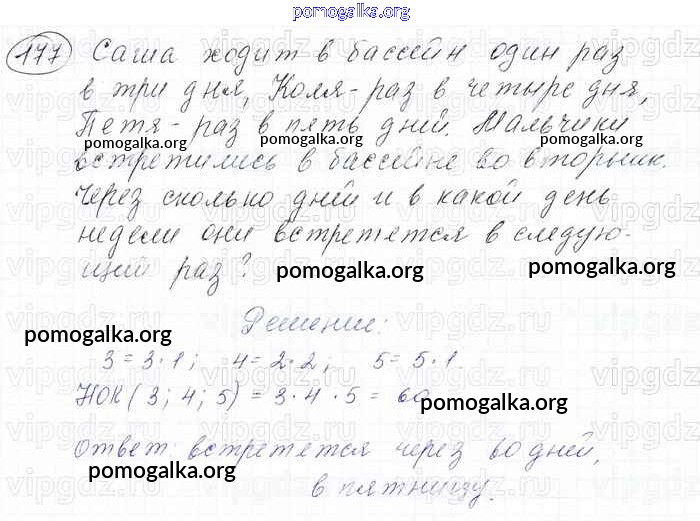 pomogalka.org
177 Саша ходит в бассейн один раз
в три дня, Коля - раз в четыре дня,
Петя - раз в пять дней. Мальчики
pomogalka.org pomogalka.org pomogalka.org
встретились в бассейне во вторник.
Через сколько дней и в какой день
недели они встретятся в следую-
щий раз?
pomogalka.org pomogalka.org
Решение:
pomogalka.org
3 = 3 · 1; 4 = 2 · 2; 5 = 5 · 1.
НОК (3; 4; 5) = 3 · 4 · 5 = 60
pomogalka.org
Ответ: встретятся через 60 дней,
pomogalka.org
в пятницу.